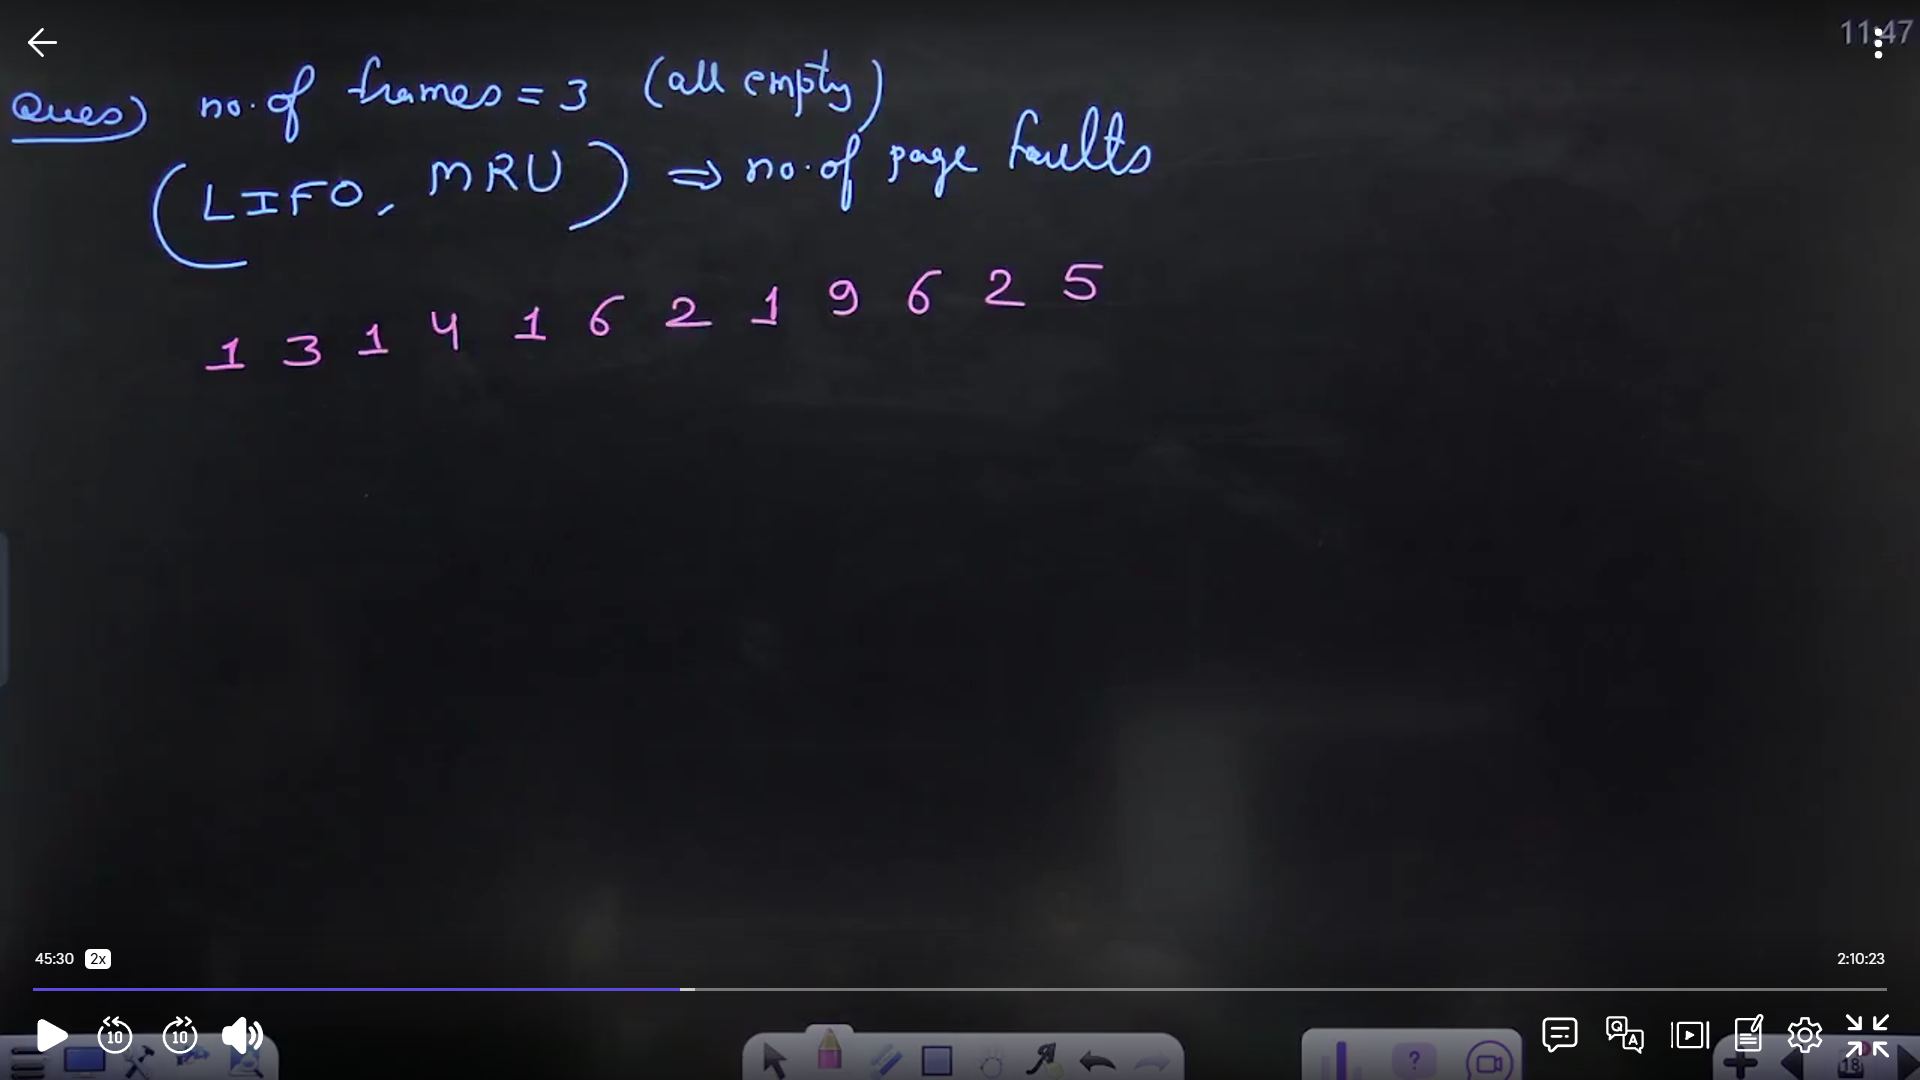 11:47
Ques) no. of frames = 3 (all empty)
(LIFO, MRU) ⇒ no. of page faults
1 3 1 4 1 6 2 1 9 6 2 5
45:30 2x 2:10:23
10 10
Q A
? 18